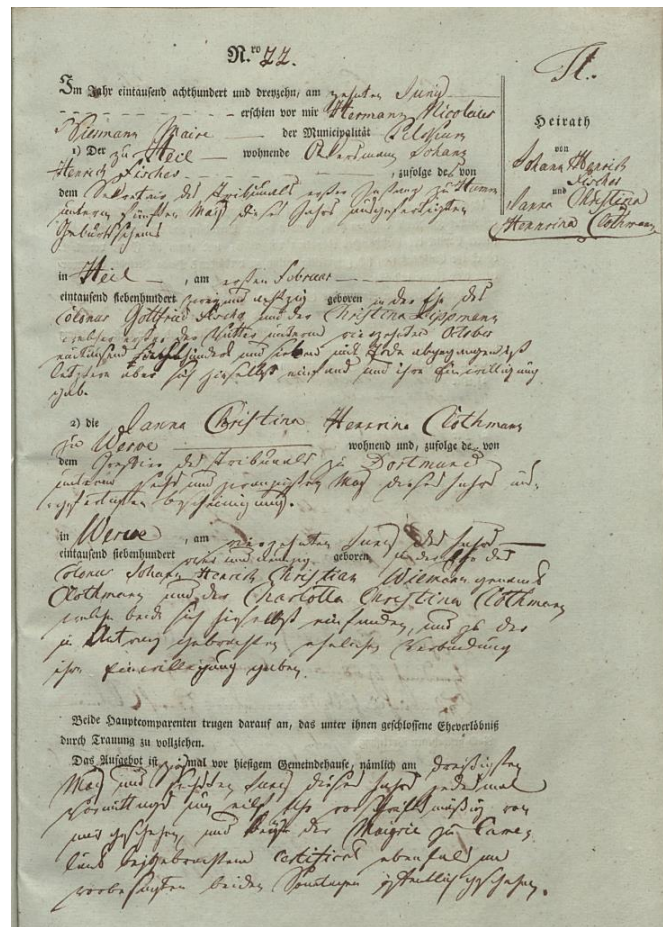 N.ro 22.
Im Jahr eintausend achthundert und dreyzehn, am zehnten Juny
erschien vor mir Hermann Nicolaus
Wiemann Maire der Municipalität Pelkum
1) Der zu Heil wohnende Ackersmann Johann
Henrich Fischer, zufolge des von
dem Sekretair des Tribunals erster zu Hamm
unterm May dieses Jahrs ausgefertigten
Geburtsscheins
St.
Heirath
von
Johann Henrich
Fischer
und
Janna Christina
Hennrina Clothmann
in Heil, am ersten Februar
eintausend siebenhundert zwey und achtzig geboren in der Ehe des
Colonus Gottfried und der Christina Lippmann
welcher erster der Vätter unterm vierzehnten October
eintausend und sieben mit Tode abgegangen ist
letztere aber sich hieselbst einfand und ihre Einwilligung
gab.
2) die Janna Christina Hennrina Clothmann
zu Werve wohnend und, zufolge de von
dem Greffier des Tribunals zu Dortmund
unterm sechs und zwanzigsten May dieses Jahrs aus-
gefertigten Bescheinigung.
in Werve, am vierzehnten Juny des Jahrs
eintausend siebenhundert und neunzig geboren in der Ehe des
Colonus Johann Henrich Christian Wiemann genannt
Clothmann und der Charlotta Christina Clothmann
welche beide sich hieselbst einfanden, und zu der
in Antrag gebrachten ehelichen Verbindung
ihre Einwilligung gaben.
Beide Hauptcomparenten trugen darauf an, das unter ihnen geschlossene Eheverlöbniß
durch Trauung zu vollziehen.
Das Aufgebot ist zweymal vor hiesigem Gemeindehause, nämlich am dreißigsten
May und sechsten Juny dieses Jahrs jedesmal
Vormittags um eilf Uhr vorschriftmäßig von
mir geschehen, und der Mairie zu Camen
laut beigebrachtem Certificat ebenfals an
vorbesagten beiden Sonntagen öffentlich geschehen.